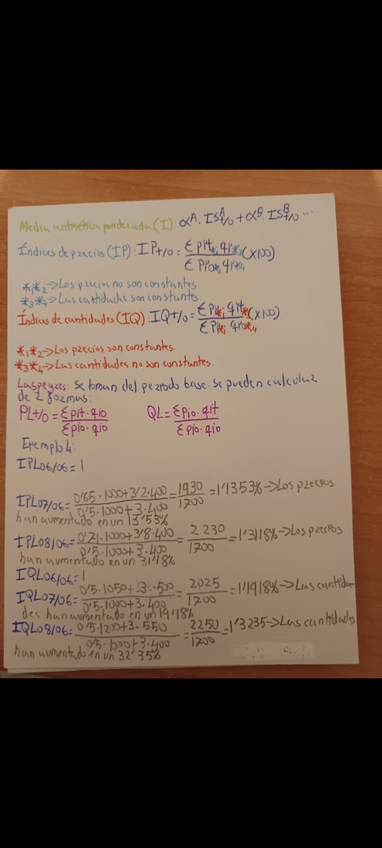 Media aritmética ponderada (I): αᴬ · ISᴬt/0 + αᴮ · ISᴮt/0 ...
Índices de precios (IP): IPt/0 = Σ pit*₁ qi*₃ / Σ pi0*₂ qi*₄ (x100)
*₁*₂ → Los precios no son constantes.
*₃*₄ → Las cantidades son constantes.
Índices de cantidades (IQ): IQt/0 = Σ pi*₁ qit*₃ / Σ pi*₂ qi0*₄ (x100)
*₁*₂ → Los precios son constantes.
*₃*₄ → Las cantidades no son constantes.
Laspeyres: Se toman del periodo base. Se pueden calcular
de 2 formas:
PLt/0 = Σ pit · qi0 / Σ pi0 · qi0 QL = Σ pi0 · qit / Σ pi0 · qi0
Ejemplo 4:
IPL06/06 = 1
IPL07/06 = 0'65 · 1000 + 3'2 · 400 / 0'5 · 1000 + 3 · 400 = 1930 / 1700 = 1'1353% → Los precios
han aumentado en un 13'53%
IPL08/06 = 0'71 · 1000 + 3'8 · 400 / 0'5 · 1000 + 3 · 400 = 2230 / 1700 = 1'3118% → Los precios
han aumentado en un 31'18%
IQL06/06 = 1
IQL07/06 = 0'5 · 1050 + 3 · 500 / 0'5 · 1000 + 3 · 400 = 2025 / 1700 = 1'1918% → Las cantida
des han aumentado en un 19'18%
IQL08/06 = 0'5 · 1200 + 3 · 550 / 0'5 · 1000 + 3 · 400 = 2250 / 1700 = 1'3235 → Las cantidades
han aumentado en un 32'35%